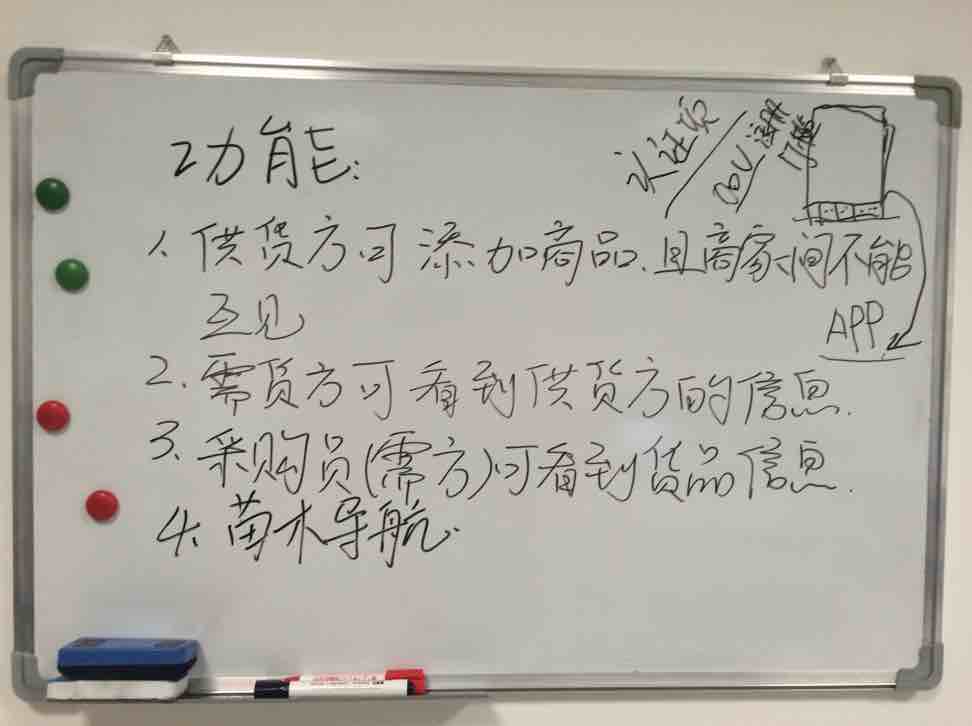 功能:
1、供货方可添加商品、且商家间不能
互见
2、需货方可看到供货方的信息.
3、采购员(需方)可看到货品信息.
4、苗木导航.
认证
APP